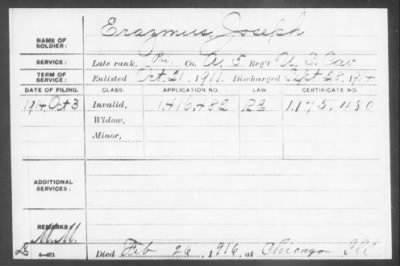 Erazmus, Joseph
NAME OF SOLDIER:
SERVICE: Late rank, Pri Co. A, 5 Reg't U.S. Cav
TERM OF SERVICE: Enlisted Oct. 21, 1911. Discharged Sept 28, 1914
DATE OF FILING. CLASS. APPLICATION NO. LAW. CERTIFICATE NO.
1914, Oct 3 Invalid, 1,416,482 1,175,480
Widow,
Minor,
ADDITIONAL SERVICES:
REMARKS: M.M.
6—673
Died Feb 26, 1916, at Chicago Ill